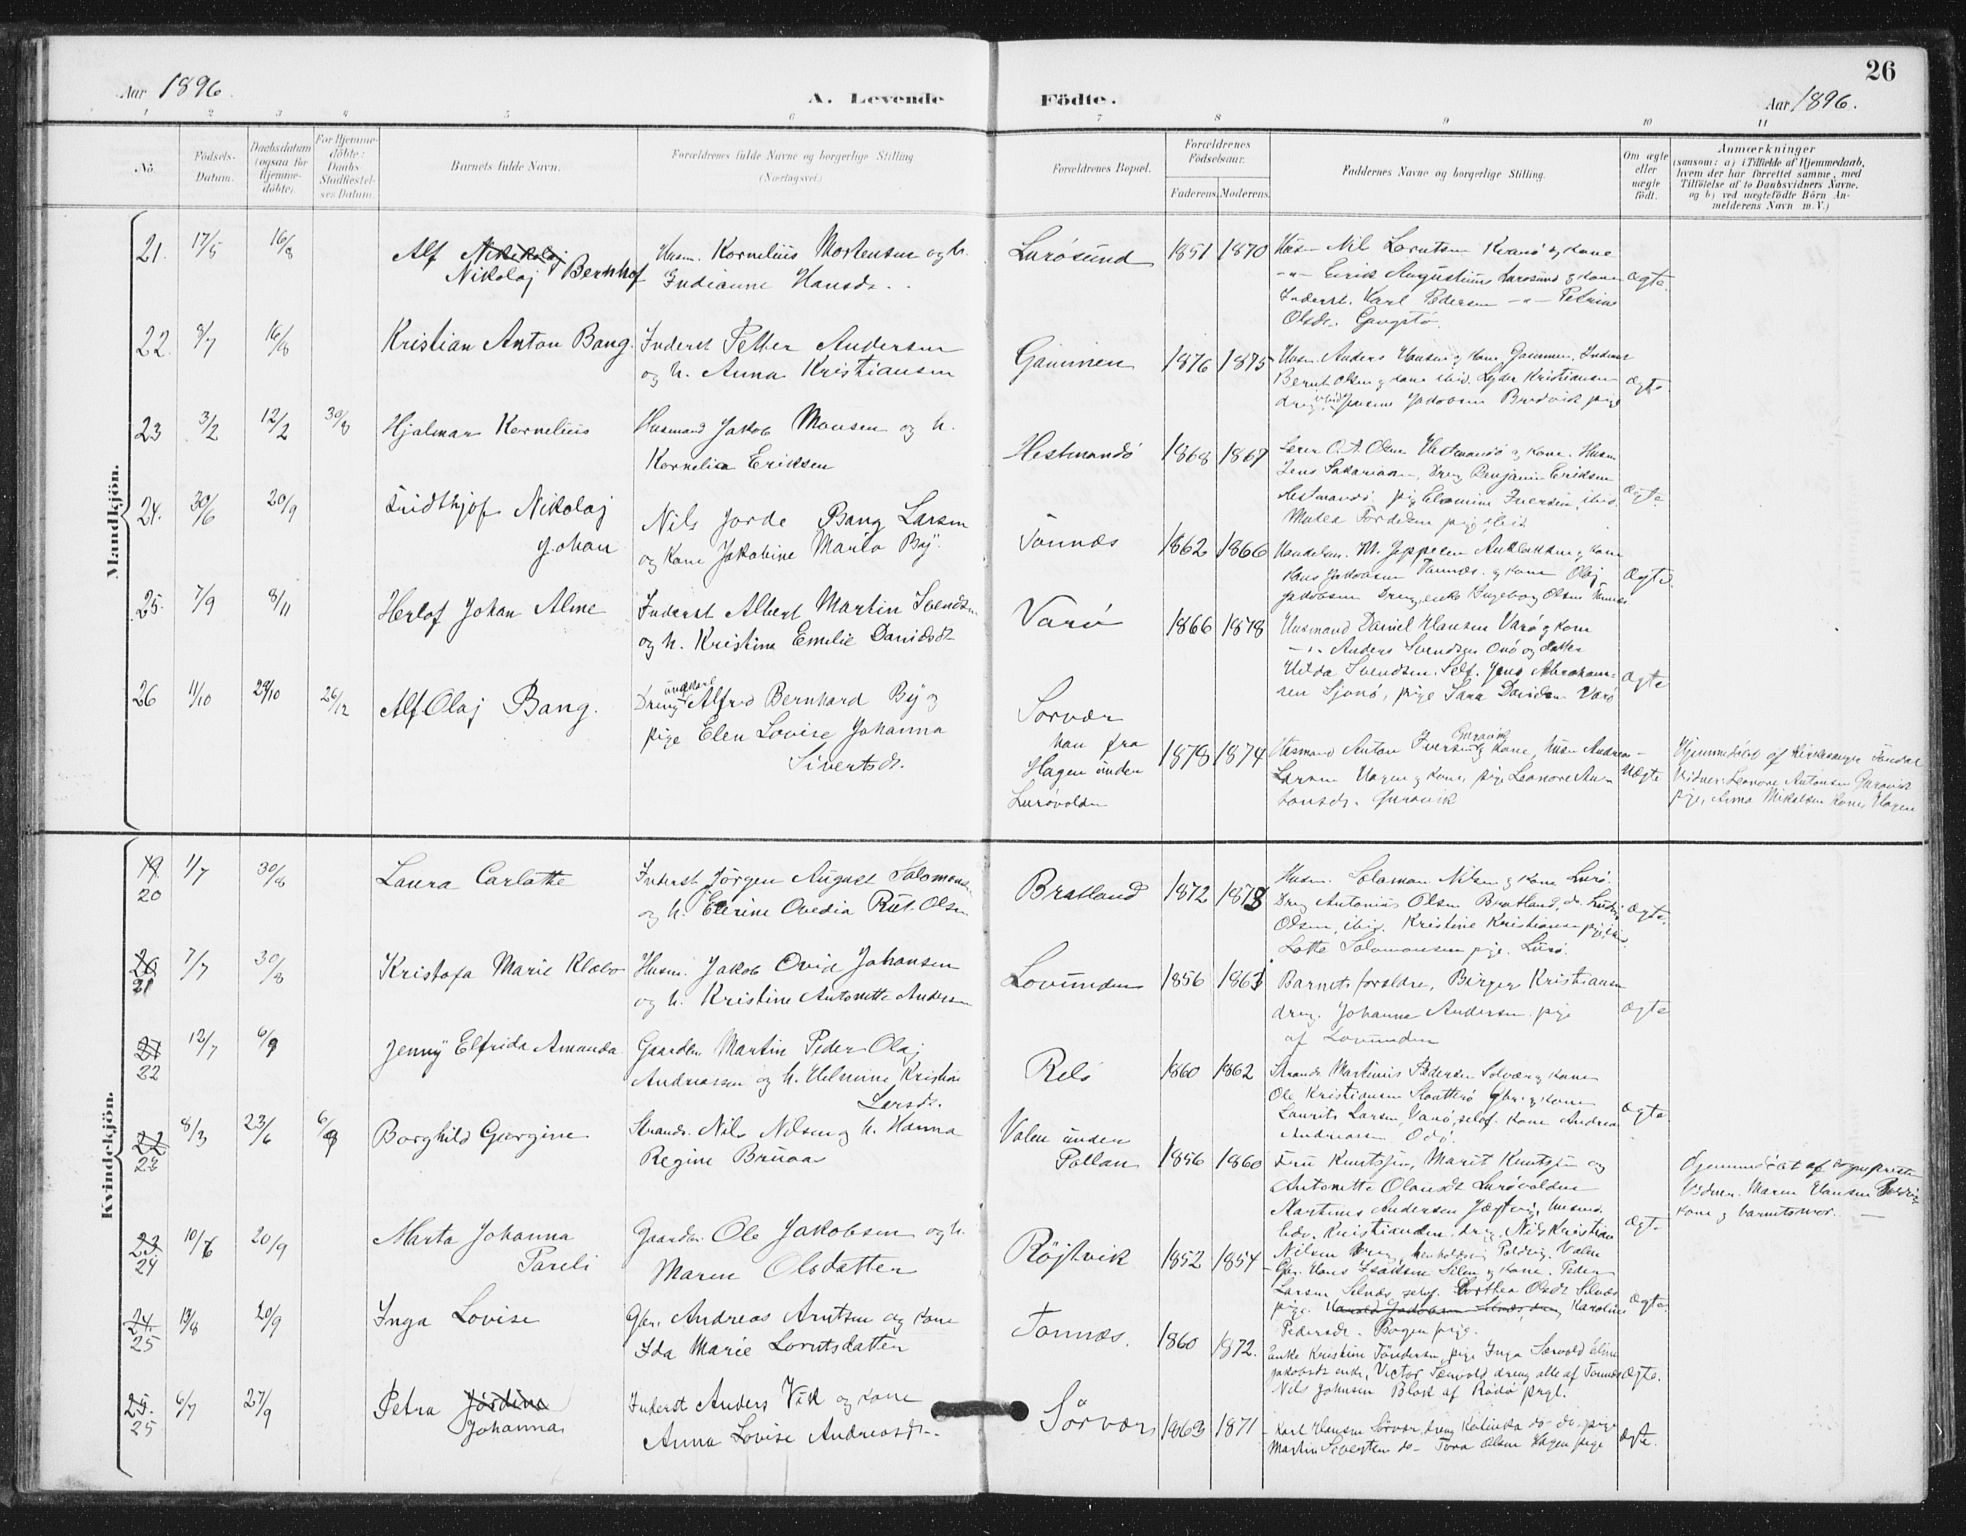 Aar 1896.
A. Levende
Födte.
26
Aar 1896.
1 2 3 4 5 6 7 8 9 10 11
No.
Födsels-
Datum.
Daabsdatum
(ogsaa for
Hjemme-
döbte).
For Hjemme-
döbte:
Daabs-
Stadfæstel-
ses Datum.
Barnets fulde Navn.
Forældrenes fulde Navne og borgerlige Stilling
(Næringsvei.)
Forældrenes Bopæl.
Forældrenes
Födselsaar.
Faderens. Moderens.
Faddernes Navne og borgerlige Stilling.
Om ægte
eller
uægte
födt.
Anmærkninger
(saasom: a) i Tilfælde af Hjemmedaab,
hvem der har forrettet samme, med
Tilföielse af to Daabsvidners Navne.
og b) ved uægtefödte Börn An-
melderens Navn m.V.)
Mandkjön.
21. 17/5 16/8 Alf
Nikolaj Bernhof
Husm. Kornelius Mortensen og h.
Indianne Hansdr.
Lurøsund 1851 1870
Husm Nil Lorntsen Kvarø og kone
-"- Eirik Augustinus Lurøsund og kone
Inderst. Karl Pedersen -"- Petrine
Olsdr.
ægte.
22. 8/7 16/8 Kristian Anton Bang.
Inderst Petter Andersen
og h. Anna Kristiansen
Gammen 1876 1875
Husm. Anders Hansen og kone, Gammen, Inderst
Bernt Olsen og kone ibid. Lyder Kristiansen
dreng ibid Jakobsen Bredvik pige
ægte
23 3/2 12/2 30/8 Hjalmar Kornelius
Husmand Jakob Monsen og h.
Kornelia Eriksen
Hestmandø 1868 1867
Lærer O. A. Olsen Hestmandø og kone. Husm
Jens Sakariasen, Dreng Benjamin Eriksen
Hestmandø, pige Elomine Iversen, ibid.
Matea Tordelsen pige ibid
ægte.
24. 30/6 20/9 Fridthjof Nikolaj
Johan
Nils Jorde Bang Larsen
og kone Jakobine Maria Bÿ.
Tonnæs 1862 1866
Handelsm. M. Jeppesen og kone
Hans Jakobsen Tonnæs. og kone Olaj
Jakobsen Dreng, enke Ingeborg Olsen Tonnæs
ægte
25. 7/9 8/11 Herlof Johan Alme
Inderst Albert Martin Svendsen
og h. Kristine Emilie Danielsdr
Varø 1866 1878
Husmand Daniel Hansen Varø og kone
-"- Anders Svendsen Onø og datter
Hilda Svendsen. Self. Jens Abraham-
sen Sjonø, pige Sara Danielsen Varø
ægte
26 11/10 29/10 26/12 Alf Olaj Bang.
ungkarl
Dreng Alfred Bernhard Bÿ og
pige Elen Lovise Johanna
Sivertsdr.
Sorvær
han fra
Hagen under
Lurøvolden
1878 1874
Gurøvik
Husmand Anton Iversen og kone, husm Andreas
Larsen Hagen og kone, pige Leonore An-
tonsdr. Gurøvik
uægte
Hjemmedøbt af Kirkesanger Tondal
Vidner: Leonore Antonsen Gurøvik
pige, Anna Mikalsen kone, Hagen
Kvindekjön.
19
20 1/7 30/8 Laura Carlotte
Inderst Jørgen August Salomonsen
og h. Elerine Ovedia Rut. Olsen
Bratland 1872 1878
Husm. Salomon Nilsen og kone Lurø.
Dreng Antonius Olsen Bratland, do. Ludvig
Olsen, ibid. Kristine Kristiansen pige, ibid.
Lotte Salomonsen pige. Lurø.
ægte.
20
21 7/7 30/8 Kristofa Marie Klæbo
Husm. Jakob Ovid Johansen
og h. Kristine Antonette Andersen
Lovunden 1856 1863
Barnets forældre, Birger Kristiansen
dreng. Johanna Andersen. pige
af Lovunden
ægte
21
22 12/7 6/9 Jenny Elfrida Amanda
Gaardm Martin Peder Olaj
Andreassen og h. Helmine Kristine
Larsdr.
Relø 1860 1862
Strands. Martinus Pedersen Solvær og kone
Ole Kristiansen Slaatterø gbr. og kone
Laurits Larsen, Varø, selvf. kone Andrea
Andreassen Odø.
ægte
22
23 8/3 23/6 6/9 Borghild Georgine
Strands. Nils Nilsen og h. Hanna
Regine Bruoas
Valen under
Pollan 1856 1860
Fru Knutsen, Marit Knutsen og
Antonette Olausdt Lurøvolden
Martinus Andersen Jægtvig, husm.
Edv. Kristiansen, dreng, Nils Kristian
Nilsen dreng, Valen
ægte
Hjemmedøbt af sognepresten
Vidner. Maren Hansen
kone og barnets mor.
23
24 10/6 20/9 Marta Johanna
Pareli
Gaardm. Ole Jakobsen og h.
Maren Olsdatter
Røjtvik 1852 1854
Gbr. Hans Isaksen Selen og kone. Peder
Larsen Selnæs, selvf. Dorthea Olsdr Selnæs
pige. Karoline
Pedersdr. Bogen pige.
ægte.
24
25 19/8 20/9 Inga Lovise
Gbr. Andreas Arntsen og kone
Ida Marie Lorntsdatter
Tonnæs. 1860 1872.
Enke Kristine Tøndersen, pige Inga Sørvold Eline
Jakobsdt enke, Victor Sørvold dreng alle af Tonnæs
Nils Johnsen Blok af Rødø prgl.
ægte.
25
25 6/7 27/9 Petra Jørdine
Johanna
Inderst Anders Vik og kone
Anna Lovise Andreasdr.
Sørvær 1863 1871
Karl Hansen Sørvær, dreng Katinka do. do. pige
Martin Sivertsen do - Tora Olsen Hagen pige
ægte.